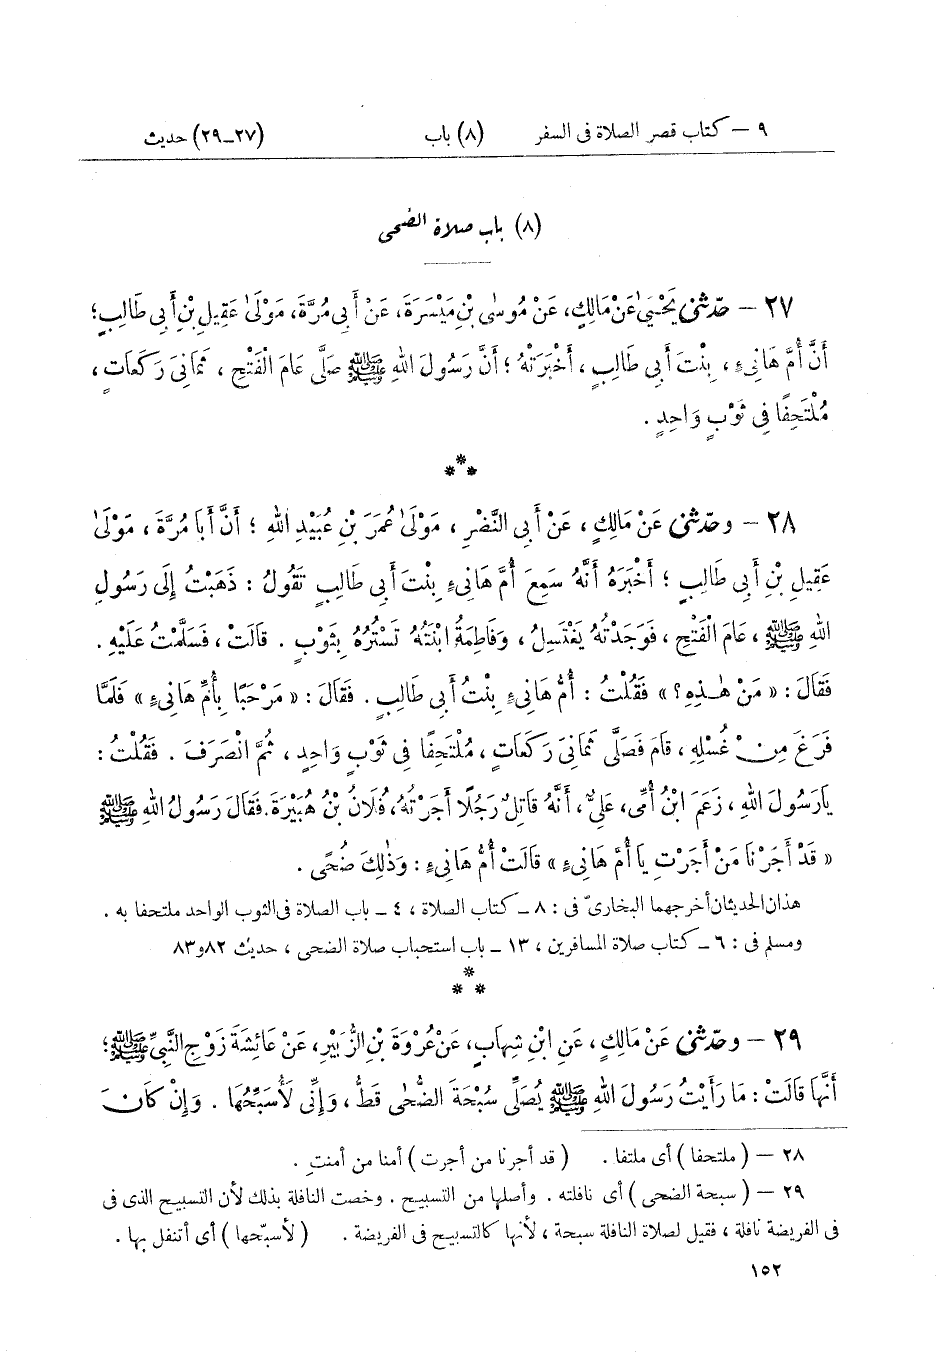 ٩ – كتاب قصر الصلاة فى السفر (٨) باب (٢٧–٢٩) حديث
(٨) باب صلاة الضحى
٢٧ – حَدَّثَنِى يَحْيَىٰ عَنْ مَالِكٍ، عَنْ مُوسَى بْنِ مَيْسَرَةَ، عَنْ أَبِى مُرَّةَ، مَوْلَىٰ عَقِيلِ بْنِ أَبِى طَالِبٍ؛
أَنَّ أُمَّ هَانِىءٍ، بِنْتَ أَبِى طَالِبٍ، أَخْبَرَتْهُ؛ أَنَّ رَسُولَ اللهِ ﷺ صَلَّى عَامَ الْفَتْحِ، ثَمَانِىَ رَكَعَاتٍ،
مُلْتَحِفًا فِى ثَوْبٍ وَاحِدٍ.
***
٢٨ – وحَدَّثَنِى عَنْ مَالِكٍ، عَنْ أَبِى النَّضْرِ، مَوْلَىٰ عُمَرَ بْنِ عُبَيْدِ اللهِ؛ أَنَّ أَبَا مُرَّةَ، مَوْلَىٰ
عَقِيلِ بْنِ أَبِى طَالِبٍ؛ أَخْبَرَهُ أَنَّهُ سَمِعَ أُمَّ هَانِىءٍ بِنْتَ أَبِى طَالِبٍ تَقُولُ: ذَهَبْتُ إِلَى رَسُولِ
اللهِ ﷺ، عَامَ الْفَتْحِ، فَوَجَدْتُهُ يَغْتَسِلُ، وَفَاطِمَةُ ابْنَتُهُ تَسْتُرُهُ بِثَوْبٍ. قَالَتْ، فَسَلَّمْتُ عَلَيْهِ.
فَقَالَ: «مَنْ هَـٰذِهِ؟» فَقُلْتُ: أُمُّ هَانِىءٍ بِنْتُ أَبِى طَالِبٍ. فَقَالَ: «مَرْحَبًا بِأُمِّ هَانِىءٍ» فَلَمَّا
فَرَغَ مِنْ غُسْلِهِ، قَامَ فَصَلَّى ثَمَانِىَ رَكَعَاتٍ، مُلْتَحِفًا فِى ثَوْبٍ وَاحِدٍ، ثُمَّ انْصَرَفَ. فَقُلْتُ:
يَا رَسُولَ اللهِ، زَعَمَ ابْنُ أُمِّى، عَلِىٌّ، أَنَّهُ قَاتِلٌ رَجُلًا أَجَرْتُهُ، فُلَانُ بْنُ هُبَيْرَةَ. فَقَالَ رَسُولُ اللهِ ﷺ
«قَدْ أَجَرْنَا مَنْ أَجَرْتِ يَا أُمَّ هَانِىءٍ» قَالَتْ أُمُّ هَانِىءٍ: وَذَٰلِكَ ضُحًى.
هذان الحديثان أخرجهما البخارىّ فى: ٨ – كتاب الصلاة، ٤ – باب الصلاة فى الثوب الواحد ملتحفا به.
ومسلم فى: ٦ – كتاب صلاة المسافرين، ١٣ – باب استحباب صلاة الضحى، حديث ٨٢ و ٨٣
***
٢٩ – وحَدَّثَنِى عَنْ مَالِكٍ، عَنِ ابْنِ شِهَابٍ، عَنْ عُرْوَةَ بْنِ الزُّبَيْرِ، عَنْ عَائِشَةَ زَوْجِ النَّبِىِّ ﷺ؛
أَنَّهَا قَالَتْ: مَا رَأَيْتُ رَسُولَ اللهِ ﷺ يُصَلِّى سُبْحَةَ الضُّحَىٰ قَطُّ، وَإِنِّى لَأُسَبِّحُهَا. وَإِنْ كَانَ
٢٨ – (ملتحفا) أى ملتفا. (قد أجرنا من أجرت) أمنا من أمنتِ.
٢٩ – (سبحة الضحى) أى نافلته. وأصلها من التسبيح. وخصت النافلة بذلك لأن التسبيح الذى فى
فى الفريضة نافلة، فقيل لصلاة النافلة سبحة، لأنها كالتسبيح فى الفريضة. (لأسبّحها) أى أتنفل بها.
١٥٢